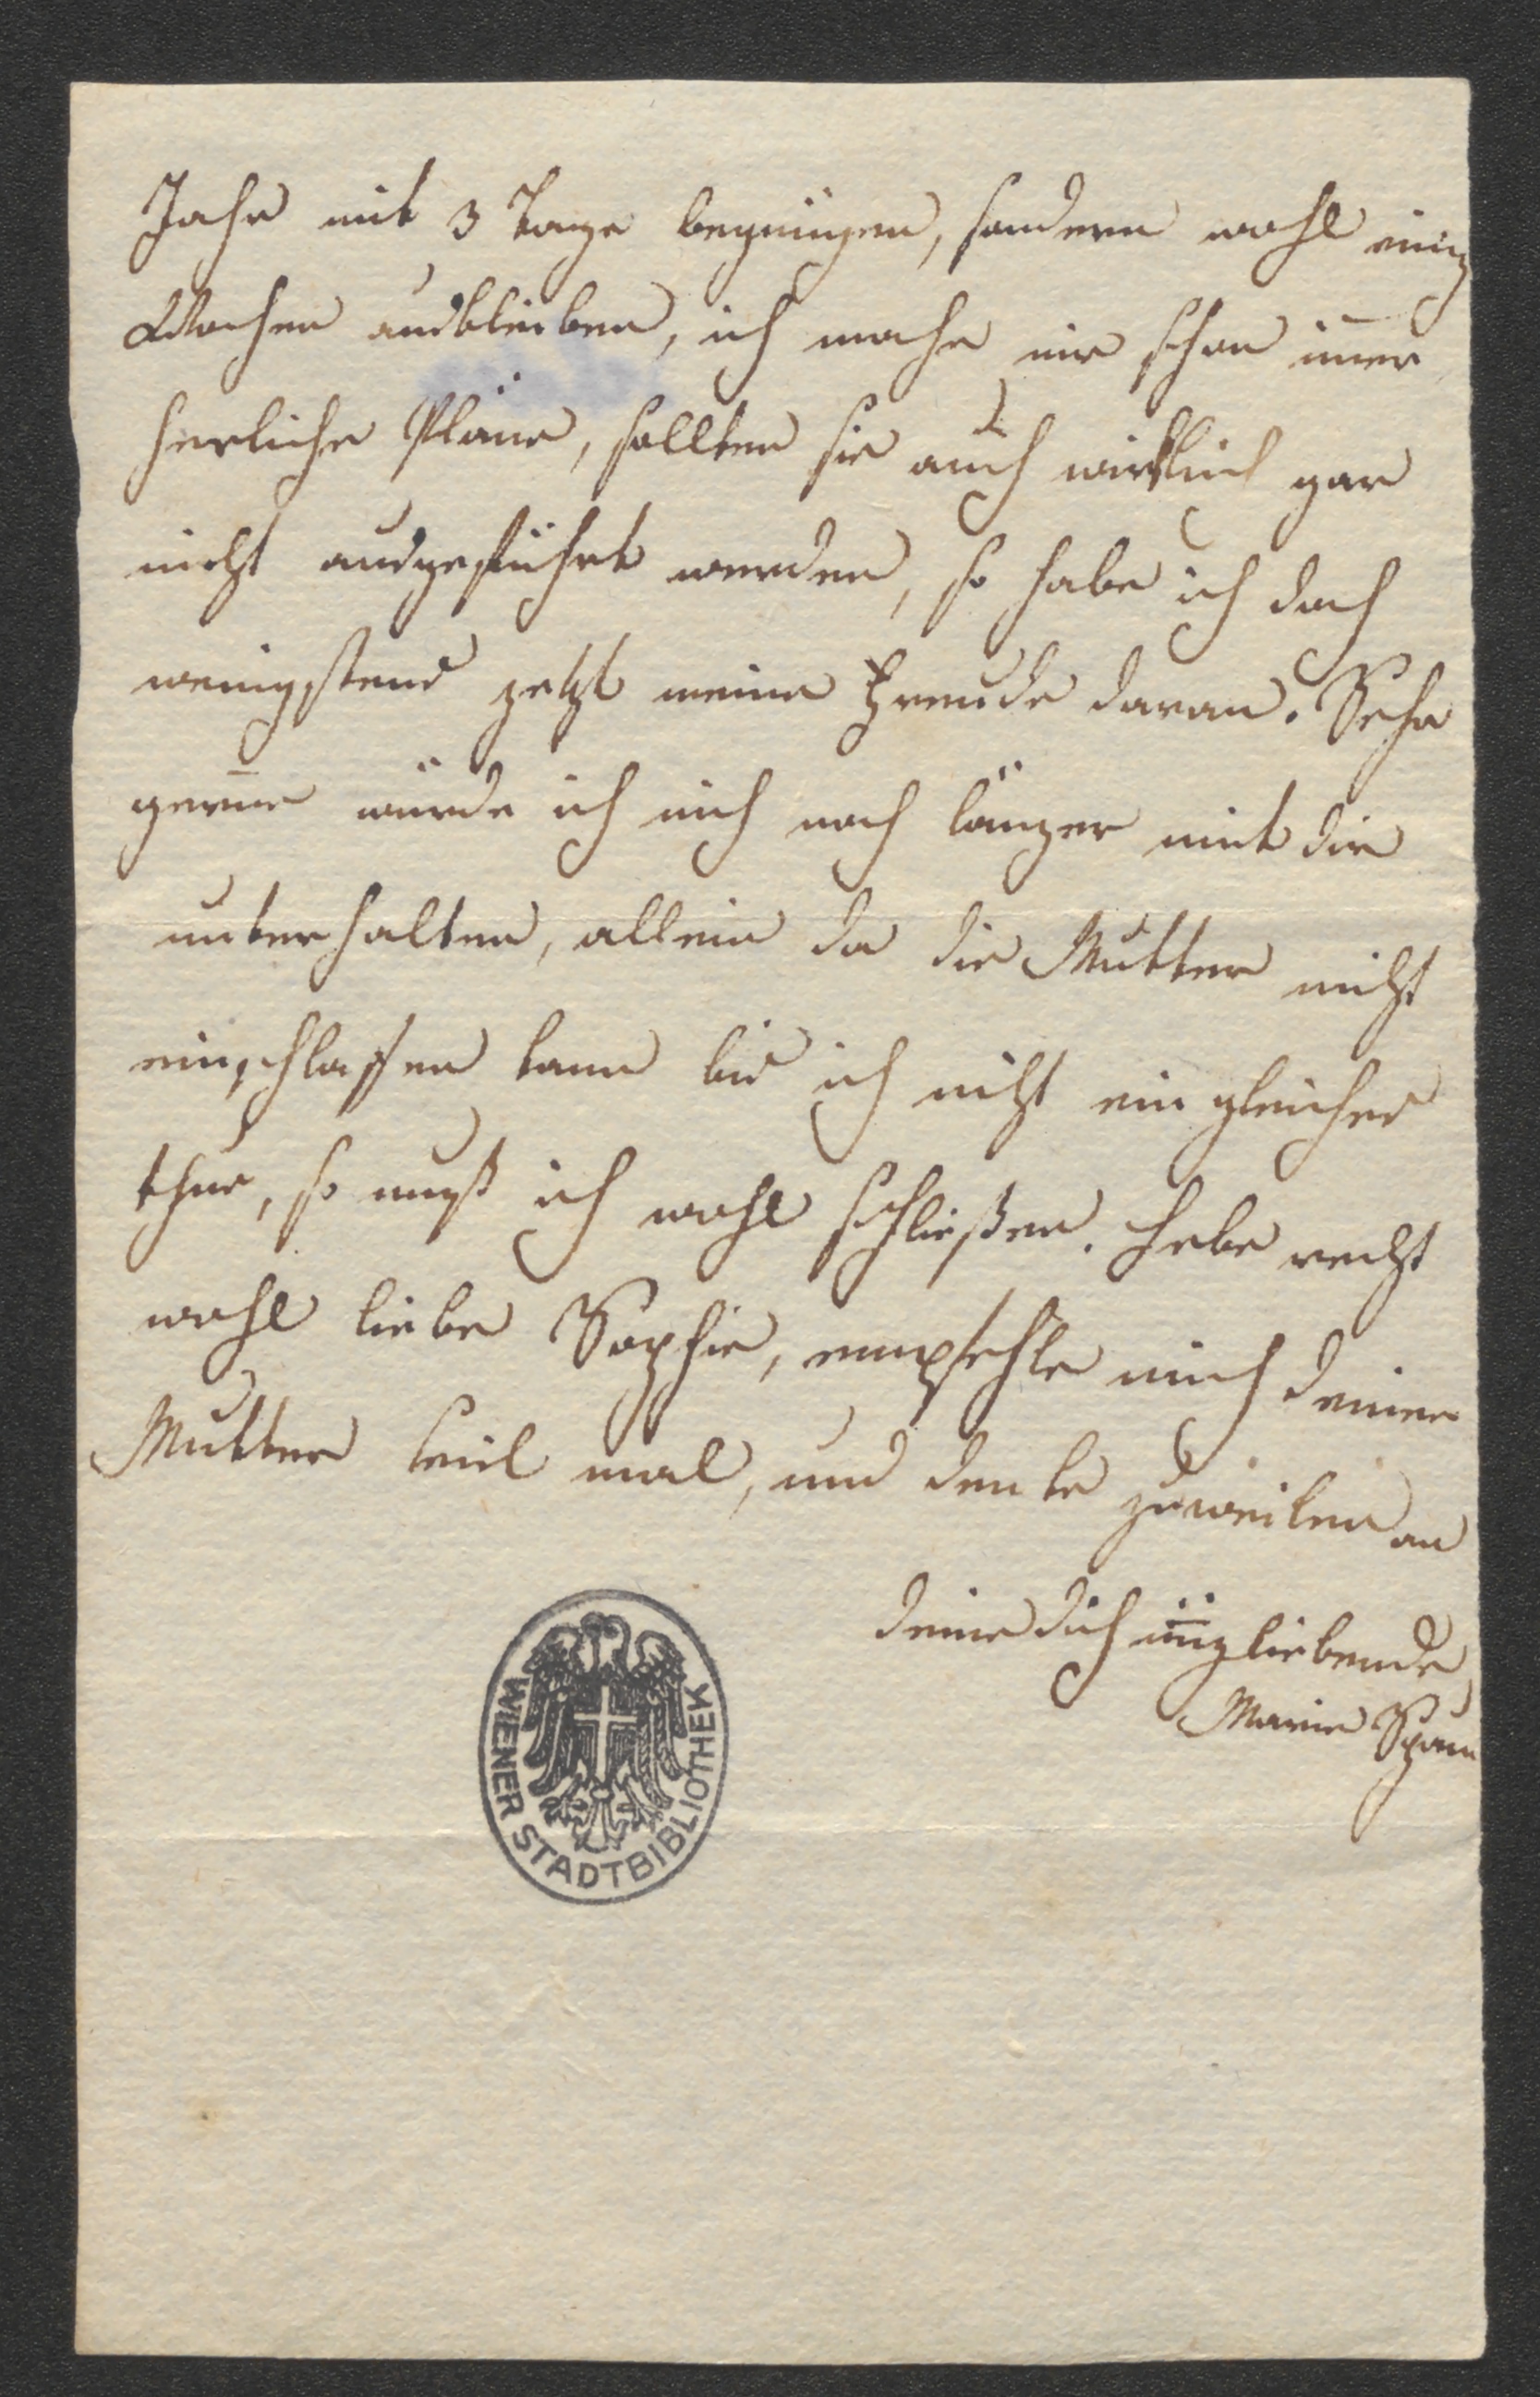 Jahr mit 3 Tage begnügen, sondern wohl einig
Wochen ausbleiben, ich mache mir schon im̅er
herliche Pläne, sollten sie auch wirklich gar
nicht ausgeführt werden, so habe ich doch
wenigstens jetzt meine Freude daran. Sehr
gern̅e würde ich mich noch länger mit dir
unterhalten, allein da die Mutter nicht
einschlaffen kann bis ich nicht ein gleiches
thue, so muß ich wohl schließen. Lebe recht
wohl liebe Sophie, empfehle mich deiner
Mutter viel mal, und denke zuweilen an
deine dich in̅ig liebende
Marie Spaun
WIENER STADTBIBLIOTHEK